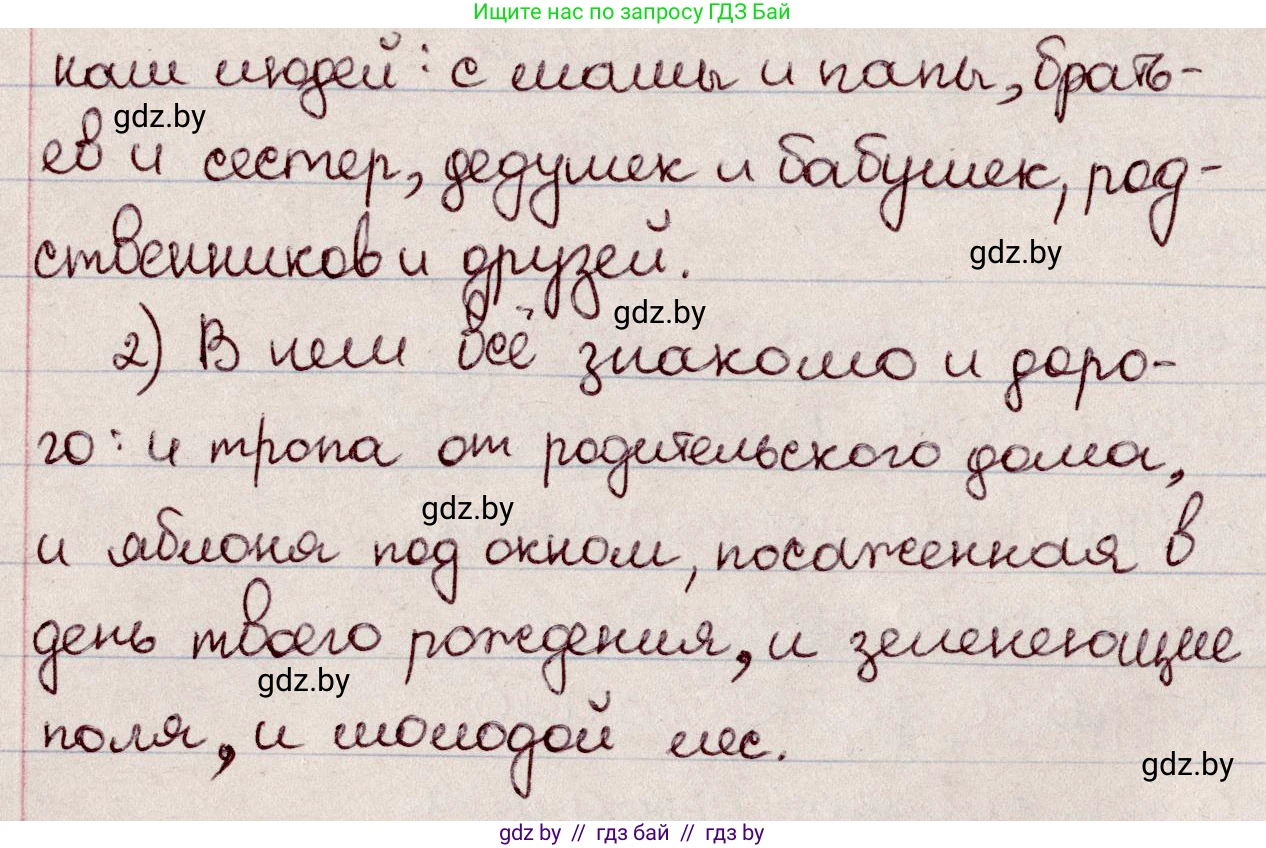 Ищите нас по запросу ГДЗ Бай
нам людей: с мамы и папы, брать-
gdz.by
ев и сестер, дедушек и бабушек, род-
ственников и друзей.
gdz.by
gdz.by
2) В нем всё знакомо и доро-
го: и тропа от родительского дома,
gdz.by
и яблоня под окном, посаженная в
день твоего рождения, и зеленеющие
gdz.by
поля, и молодой лес.
gdz.by
gdz by // гдз бай // гдз by